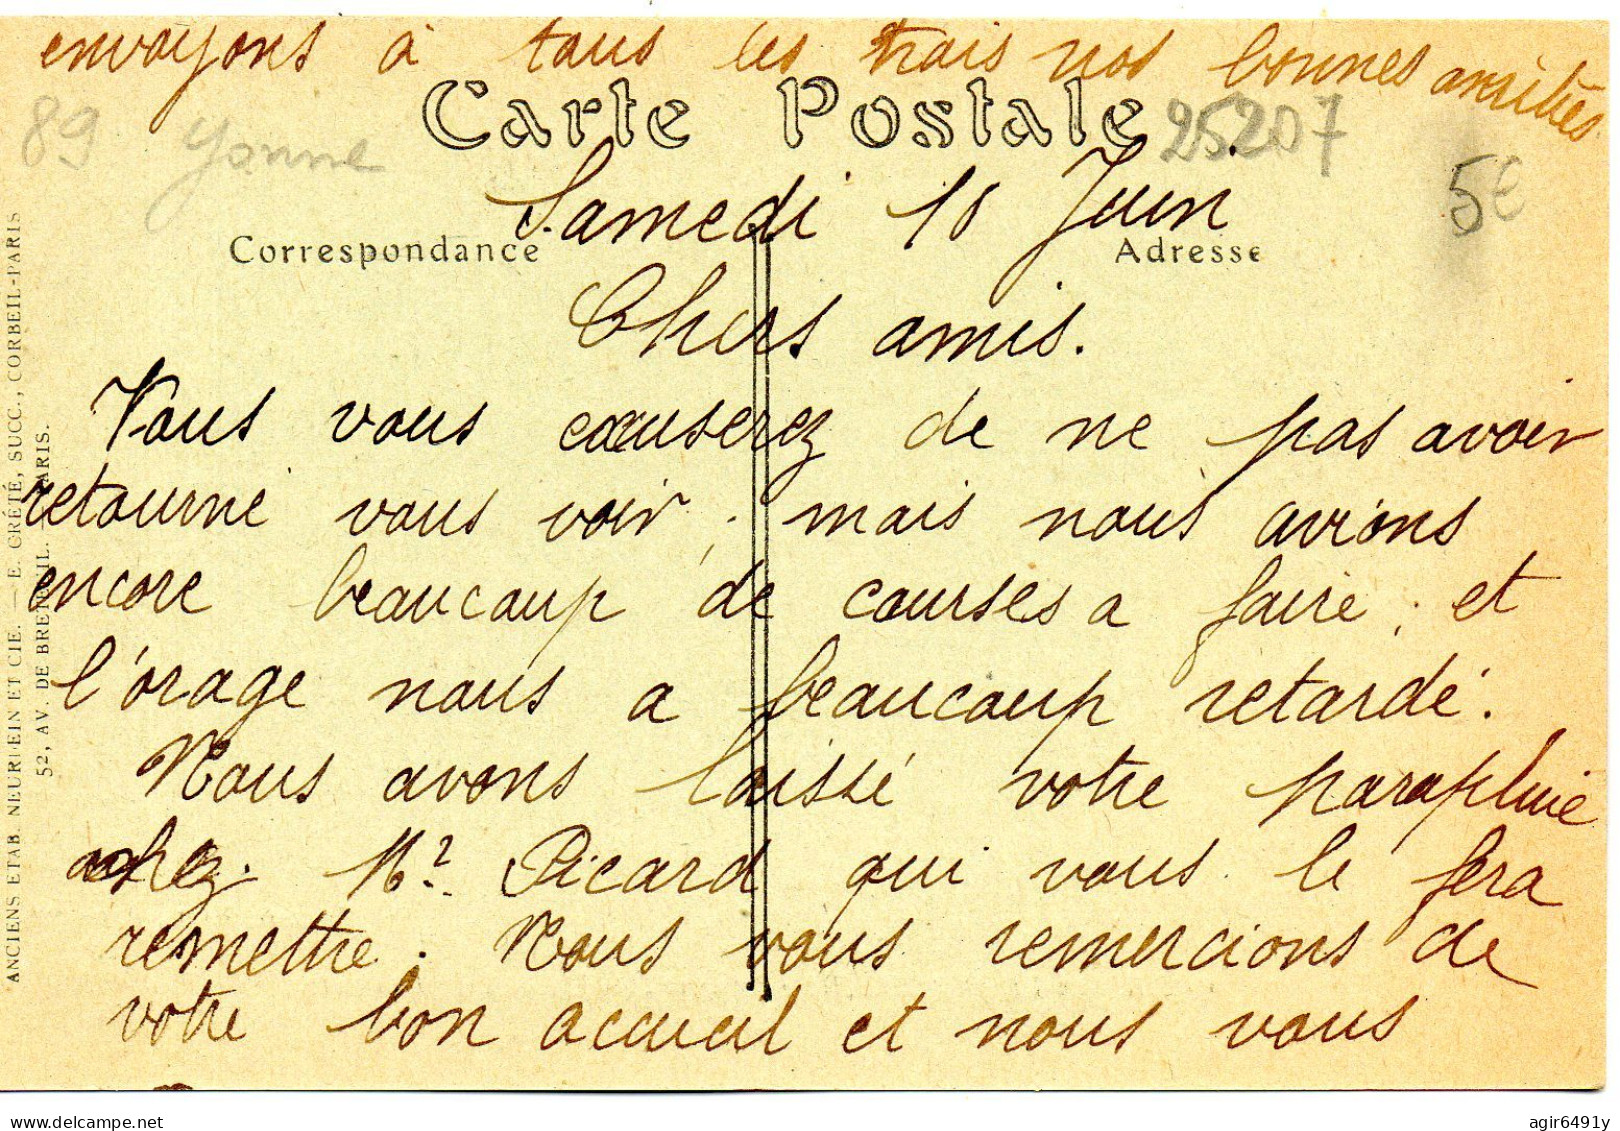 envoyons à tous les trois nos bonnes amitiés
Carte Postale
25207
89 Yonne
5€
Samedi 18 Juin
Correspondance
Adresse
Chers amis.
Vous vous causerez de ne pas avoir
retourné vous voir, mais nous avions
encore beaucoup de courses a faire, et
l'orage nous a beaucoup retardé.
Nous avons laissé votre parapluie
chez Mr Picard qui vous le fera
remettre. Nous vous remercions de
votre bon accueil et nous vous
ANCIENS ETAB. NEURDEIN ET CIE. — E. CRÉTÉ, SUCC., CORBEIL-PARIS
52, AV. DE BRETEUIL. PARIS.
agir6491y